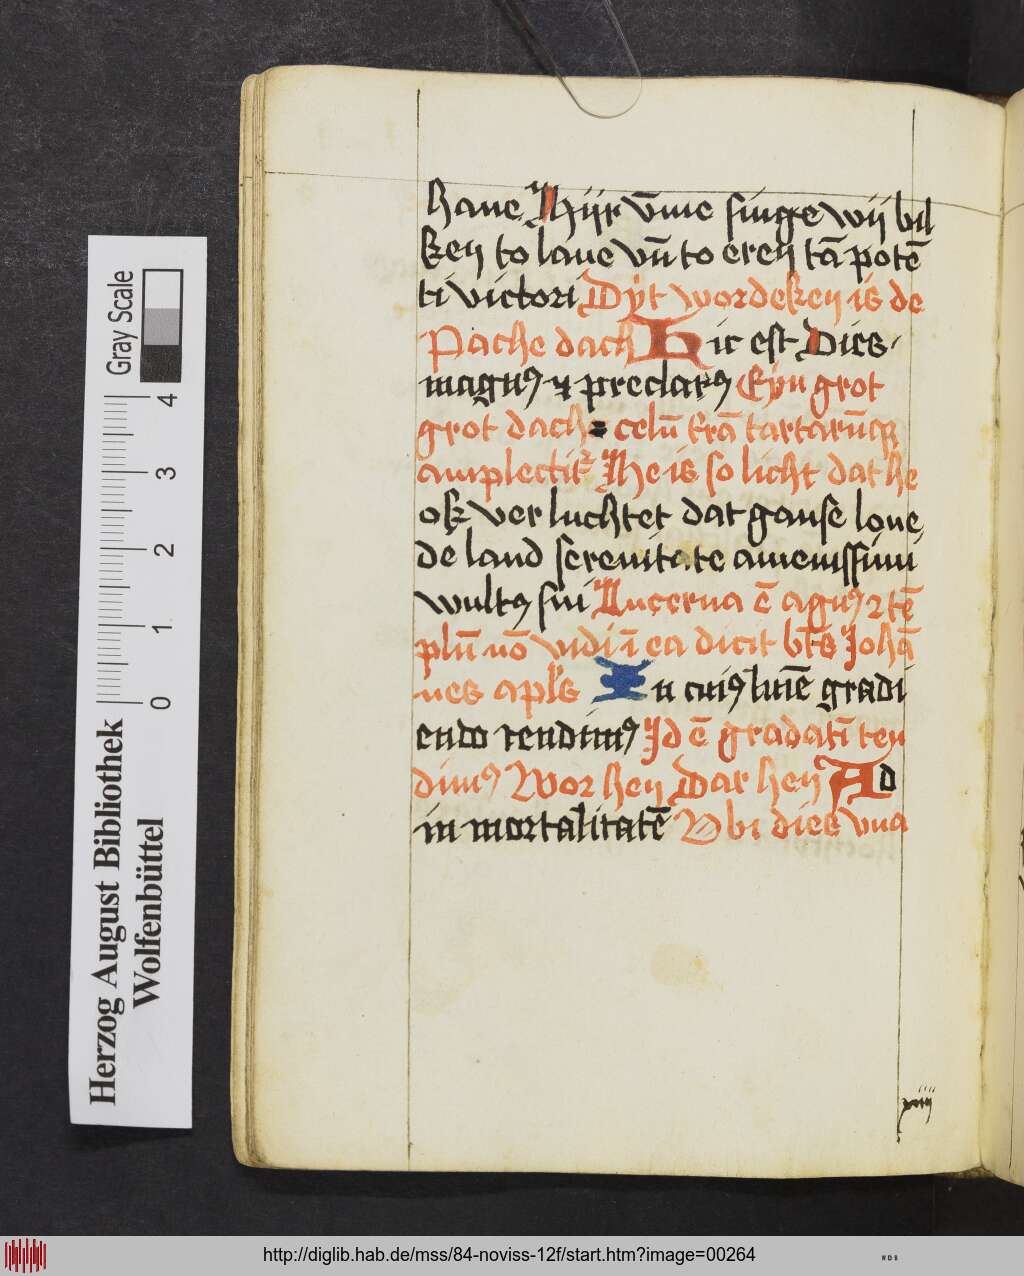 haue Hijr v̄me singe wij bil
ken to laue vn̄ to eren tā potē
ti victori Dyt wordeken is de
Pache dach Hic est Dies
magnꝯ ⁊ preclarꝯ Eyn grot
grot dach celū t̄rā tartarūqꝫ
amplectit᷑ He is so licht dat he
ok ver luchtet dat ganse loue
de land serenitate amenissimi
wultꝯ sui Lucerna ē agnꝯ ⁊ tē
plū nō vidi ī ea dicit bt̄s Johā
nes apl̄s In cuiꝯ lūīe gradi
endo tendimꝯ Id ē gradatī ten
dimꝯ Wor hen Dar hen Ad
in mortalitatē Vbi dies vna
xiiij
Gray Scale
4
3
2
1
0
Herzog August Bibliothek
Wolfenbüttel
http://diglib.hab.de/mss/84-noviss-12f/start.htm?image=00264